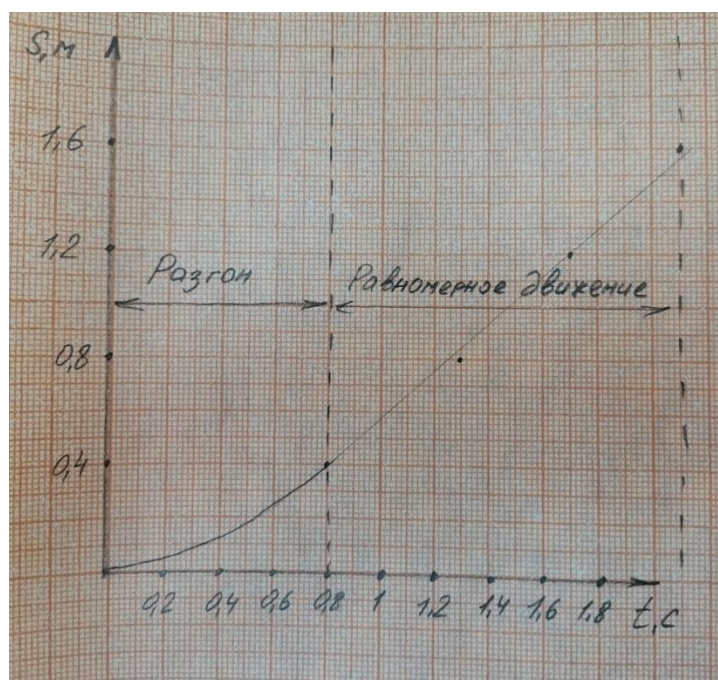 S,м
1,6
1,2
Разгон
Равномерное движение
0,8
0,4
0,2 0,4 0,6 0,8 1 1,2 1,4 1,6 1,8 t,c